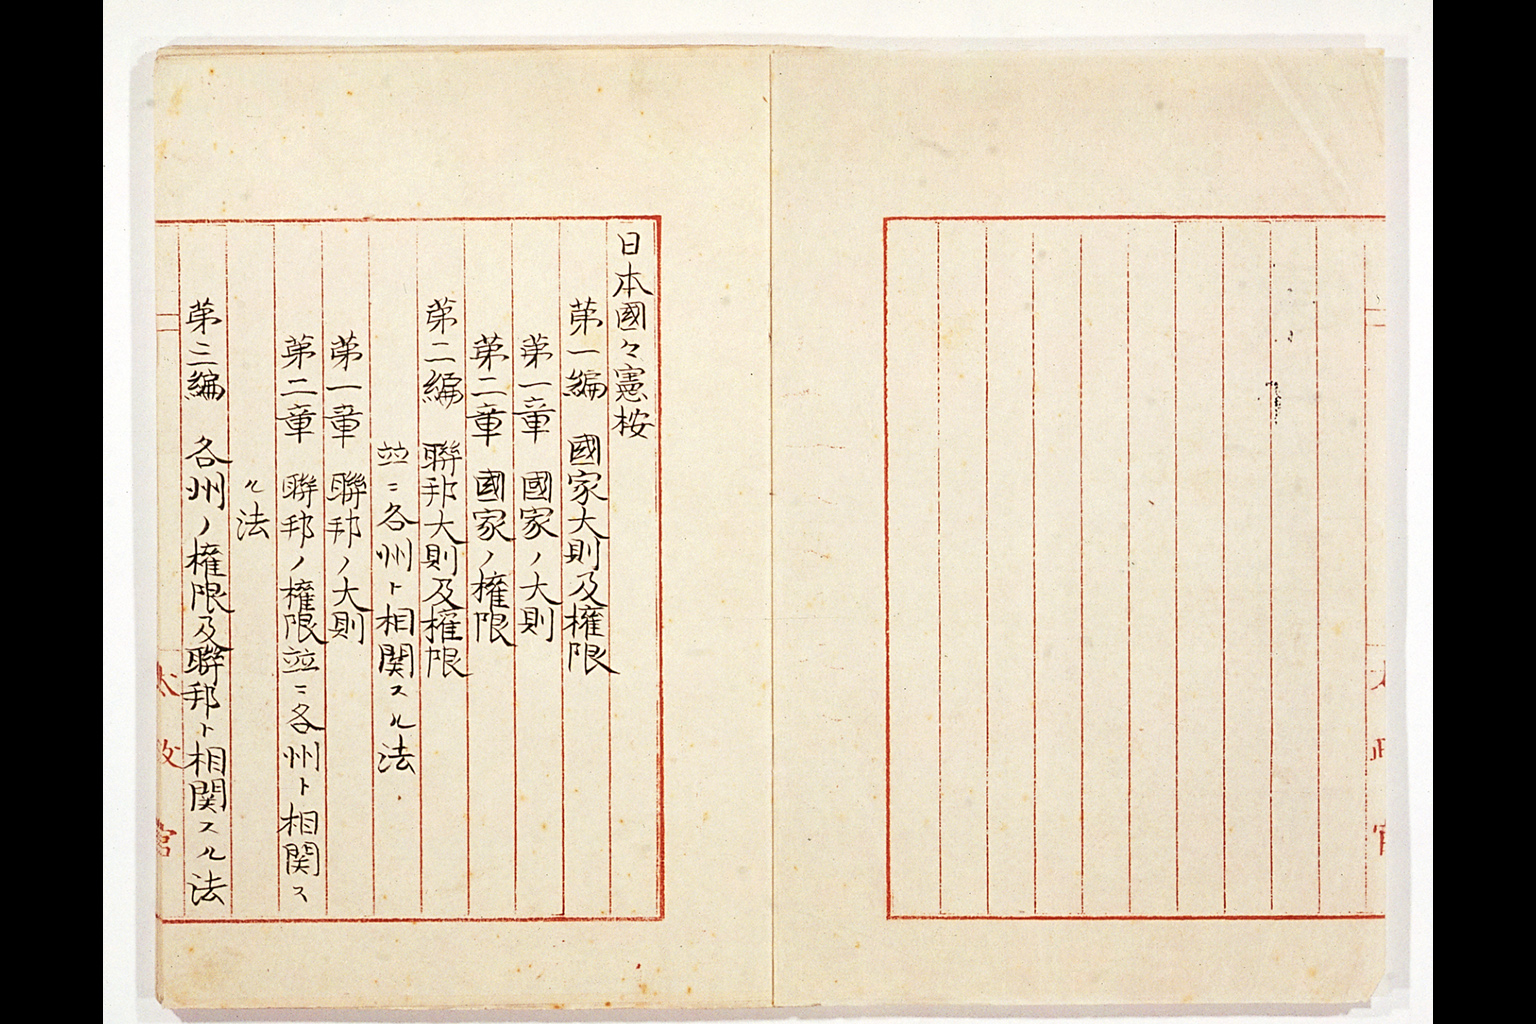 日本國々憲桉
第一編 國家大則及權限
第一章 國家ノ大則
第二章 國家ノ權限
第二編 聯邦大則及權限
並ニ各州ト相関スル法
第一章 聯邦ノ大則
第二章 聯邦ノ權限並ニ各州ト相関ス
ル法
第三編 各州ノ權限及聯邦ト相関スル法
太政官